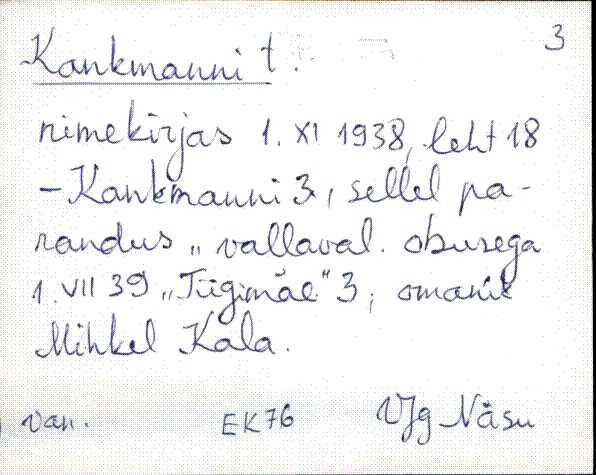 3
Kankmanni t.
nimekirjas 1. XI 1938, leht 18
– Kankmanni 3, sellel pa-
randus „ vallaval. otsusega
1. VII 39 „Tiigimäe" 3; omanik
Mihkel Kala.
van. EK76 VJg Näsu